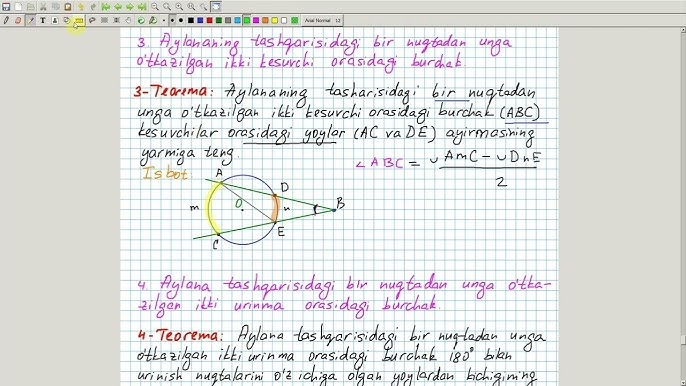 Arial Normal 12
3. Aylananing tashqarisidagi bir nuqtadan unga
o'tkazilgan ikki kesuvchi orasidagi burchak.
3-Teorema: Aylananing tasharisidagi bir nuqtadan
unga o'tkazilgan ikki kesuvchi orasidagi burchak (ABC)
kesuvchilar orasidagi yoylar (AC va DE) ayirmasining
yarmiga teng.
∠ABC = (∪AmC − ∪DnE) / 2
Isbot
A
D
m
O
n
B
E
C
4. Aylana tashqarisidagi bir nuqtadan unga o'tka-
zilgan ikki urinma orasidagi burchak.
4-Teorema: Aylana tashqarisidagi bir nuqtadan unga
o'tkazilgan ikki urinma orasidagi burchak 180° bilan
urinish nuqtalarini o'z ichiga olgan yoylardan bichigining